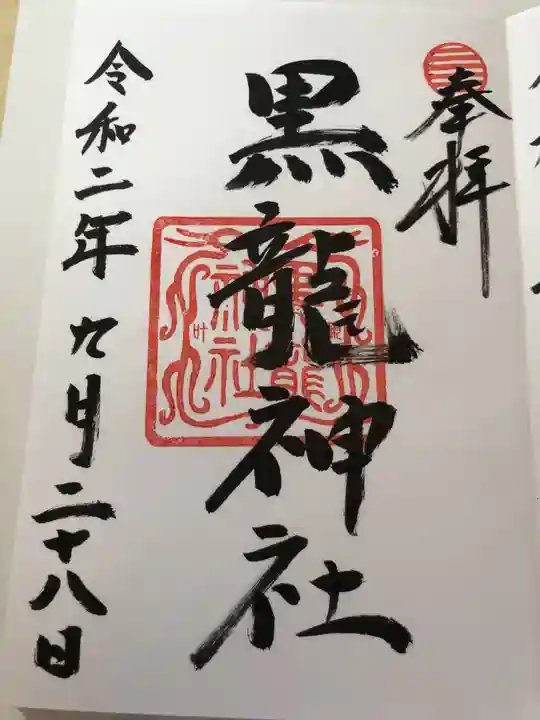 奉拝
黒龍神社
令和二年九月二十八日